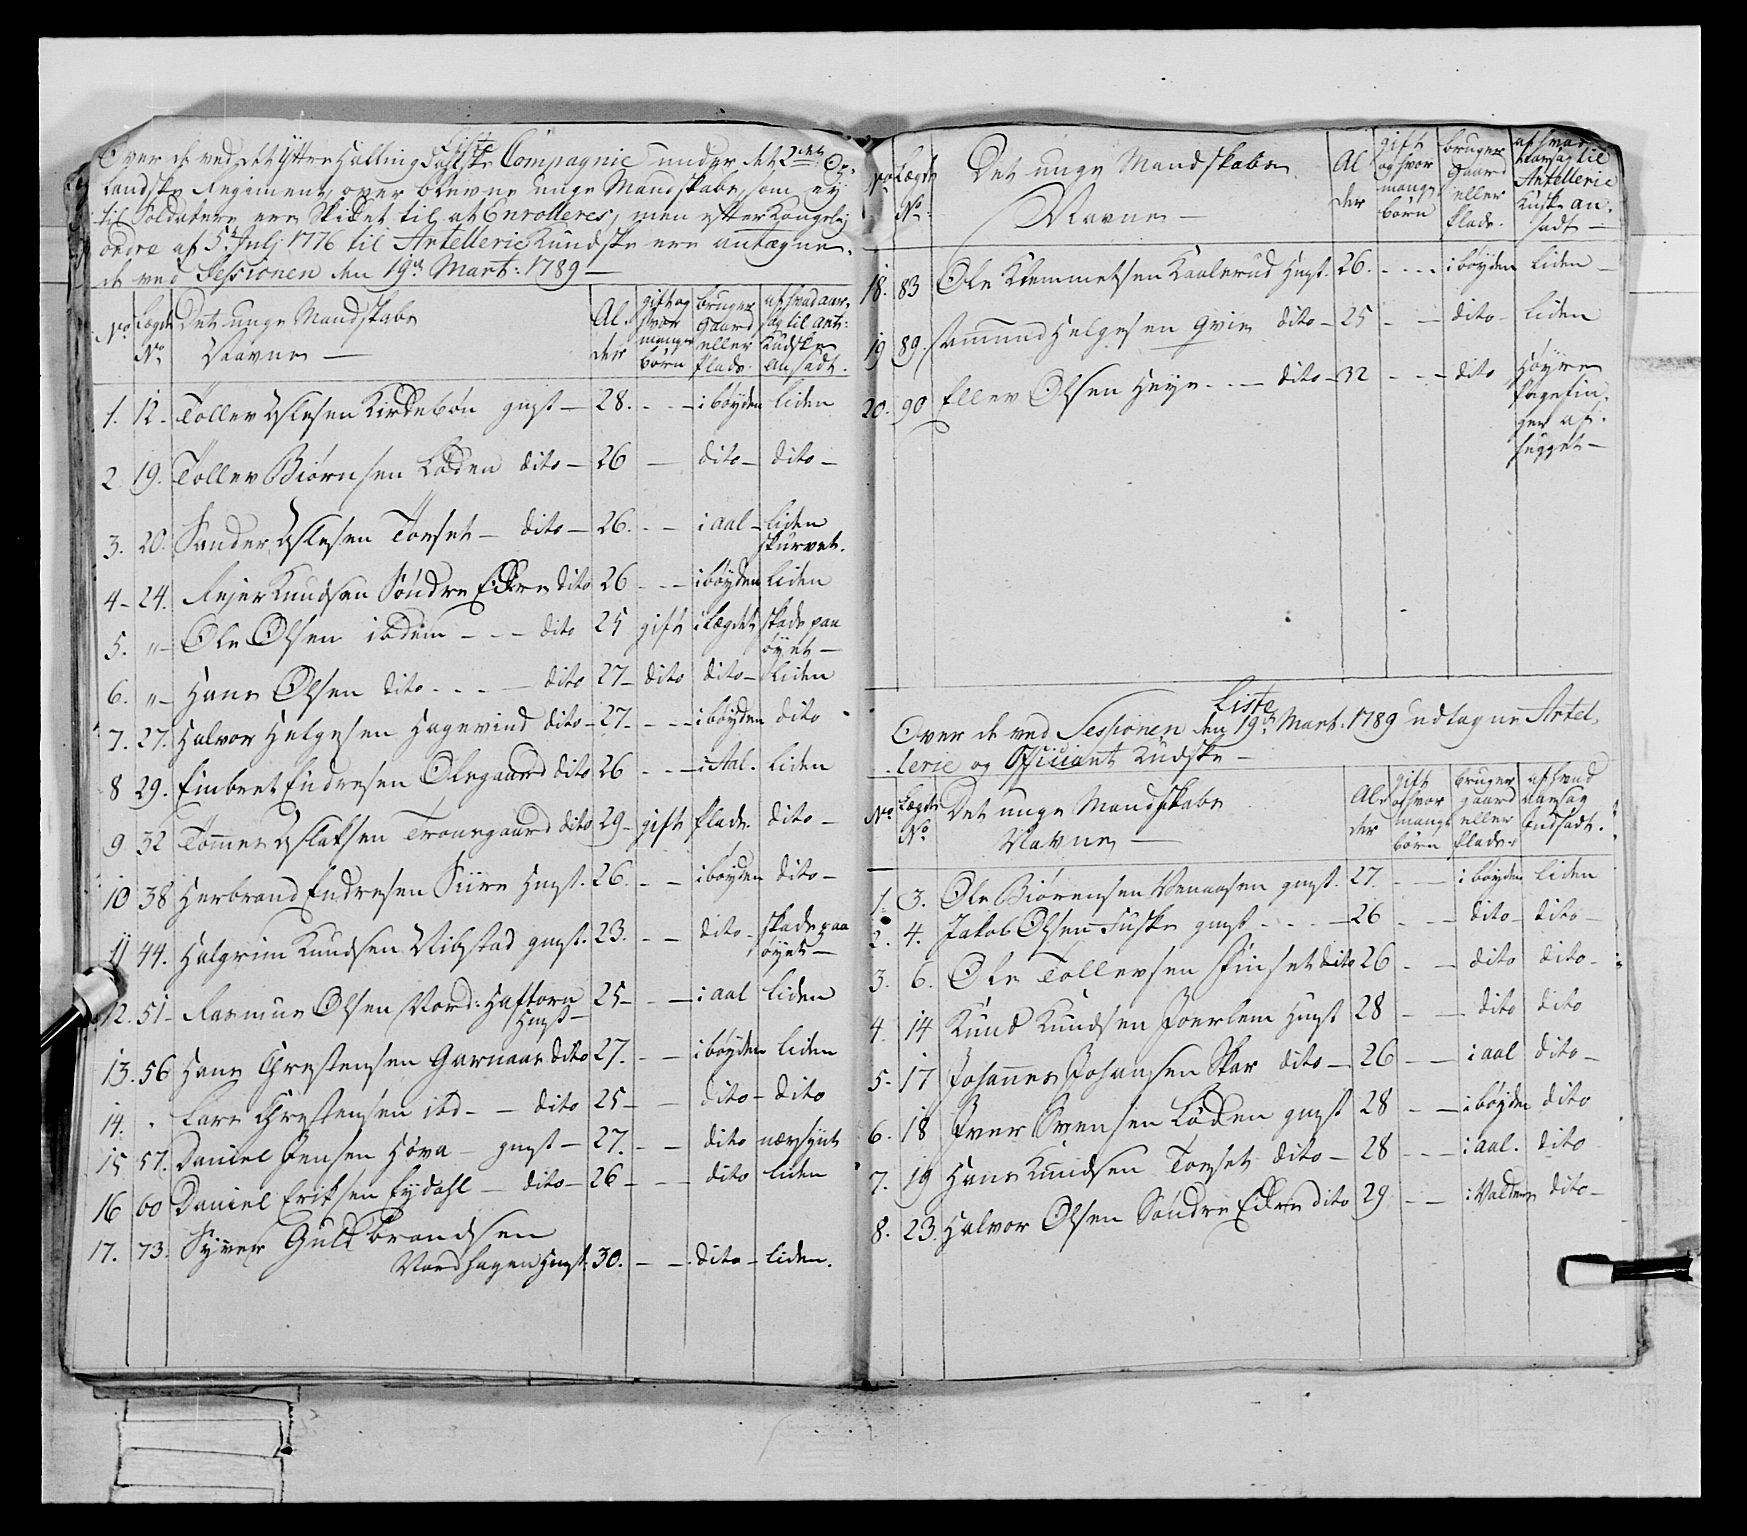 Liste
Over de ved det Yttre Hallingdahlske Compagnie under det 2det Op-
landske Regiment, over blevne unge Mandskabe, som ey
til Soldatere ere skikket til at Enrolleres, men efter Kongelig
ordre af 5t Julj 1776 til Artellerie Kudske ere antagne-
de ved Sessionen den 19de Mart: 1789 —
No Lægds No Det unge Mandskabs Navne — Alder gift og hvor mange børn bruger gaard eller plads. af hvad aarsag til Art: Kudske ansadt.
1. 12. Tollev Aslesen Kirkebøn gugst — 28. - - - i bøyden liden
2. 19. Tollev Biørnsen Løden dito — 26 — dito — dito —
3. 20. Sander Aslesen Torset — dito — 26. - — i aal — liden
skurvet.
4 - 24. Rejer Knudsen Søndre Ekre dito 26 - - - i bøyden liden
5. " - Ole Olsen ibdem - - - dito 25 gift i Lægdet skade paa
øyet —
6. " - Hans Olsen dito - - - — dito 27 - dito dito - liden
7. 27. Halvor Helgesen Hagevind dito - 27. - - - i bøyden dito
8 29. Embret Endresen Olsgaard dito 26 - - - i Aal. liden
9 32 Tommes Aslaksen Trounsgaard dito 29 - gift plads. dito —
10 38 Herbrand Endresen Siire Hugst. 26. - - i bøyden dito —
11 44. Halgrim Knudsen Vibstad gugst. 23. - - dito - skade paa
øyet —
12. 51 - Rasmus Olsen Nord: Haftorn 25 - - — i aal liden
Hugst —
13. 56 Hans Chrestensen Garnaas dito 27. - - i bøyden liden
14. " Lars Chrestensen ibd - - dito 25 - - dito - dito
15 57. Daniel Jensen Hova — gugst — 27. - - dito nærsynt
16 60 Daniel Eriksen Eydahl — dito - 26 - - - dito liden
17. 73. Syver Guldbrandsen
Nordhagen Hugst. 30. - - dito - liden.
No Lægds No. Det unge Mandskabs Navne — Alder gift og hvor mange børn bruger Gaard eller plads. af hvad Aarsag til Artellerie Kuske ansadt —
18. 83 Ole Klemmetsen Kaalerud Hugst. 26. - - - - i bøyden liden —
19 89. Amund Helgesen Qvie dito - 25 - — dito - liden
20. 90 Ellev Olsen Heye - - — dito - 32 - - - dito Høyre
pegefin-
ger af-
hugget —
Liste
Over de ved Sessionen den 19de Mart: 1789 udtagne Artel-
lerie og Officiant Kudske —
No. Lægds No Det unge Mandskabs Navne — Alder gift og hvor mange børn bruger gaard eller plads. af hvad Aarsag Andsadt.
1. 3. Ole Biørensen Venaasen gugst. 27. - — i bøyden liden
2. 4. Jakob Olsen Fuske gugst - - - - 26 - — dito - dito —
3. 6. Ole Tollevsen Finset dito 26 - — dito dito -
4. 14 Knud Knudsen Joerlem Hugst 28 - — dito dito
5. 17 Johannes Johansen Skar dito - 26 - — i aal dito —
6. 18 Iver Svensen Løden gugst 28 - — i bøyden dito
7. 19 Hans Knudsen Torset dito - 28 - - — i aal. dito
8. 23. Halvor Olsen Søndre Ekre dito 29 - — i Valders dito —